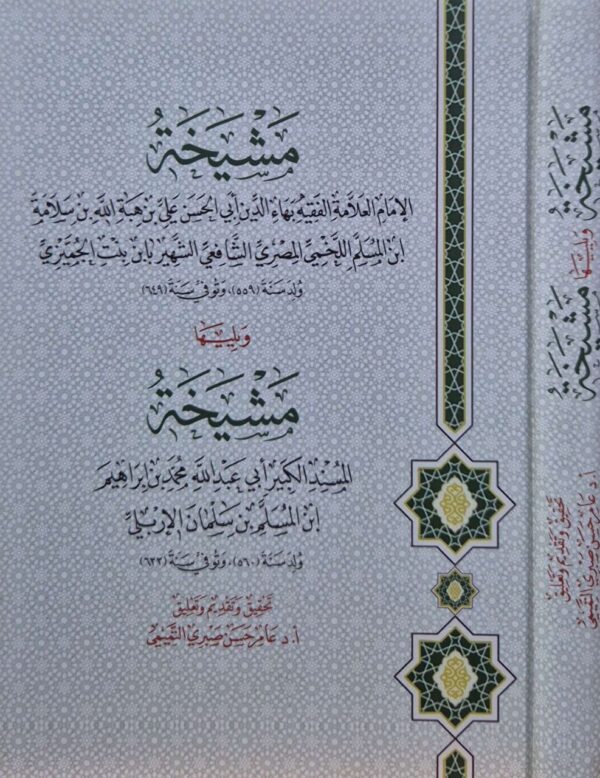 مَشْيَخَةُ
الإمام العلامة الفقيه بهاء الدين أبي الحسن علي بن هبة الله بن سلامة
ابن المسلم اللخمي المصري الشافعي الشهير بابن بنت الجميزي
ولد سنة (٥٥٩)، وتوفي سنة (٦٤٩)
ويليها
مَشْيَخَةُ
المسند الكبير أبي عبد الله محمد بن إبراهيم
ابن المسلم بن سلمان الإربلي
ولد سنة (٥٦٠)، وتوفي سنة (٦٣٣)
تحقيق وتقديم وتعليق
أ. د عامر حسن صبري التميمي
مَشْيَخَةُ
ويليها
مَشْيَخَةُ
تحقيق وتقديم وتعليق
أ. د عامر حسن صبري التميمي